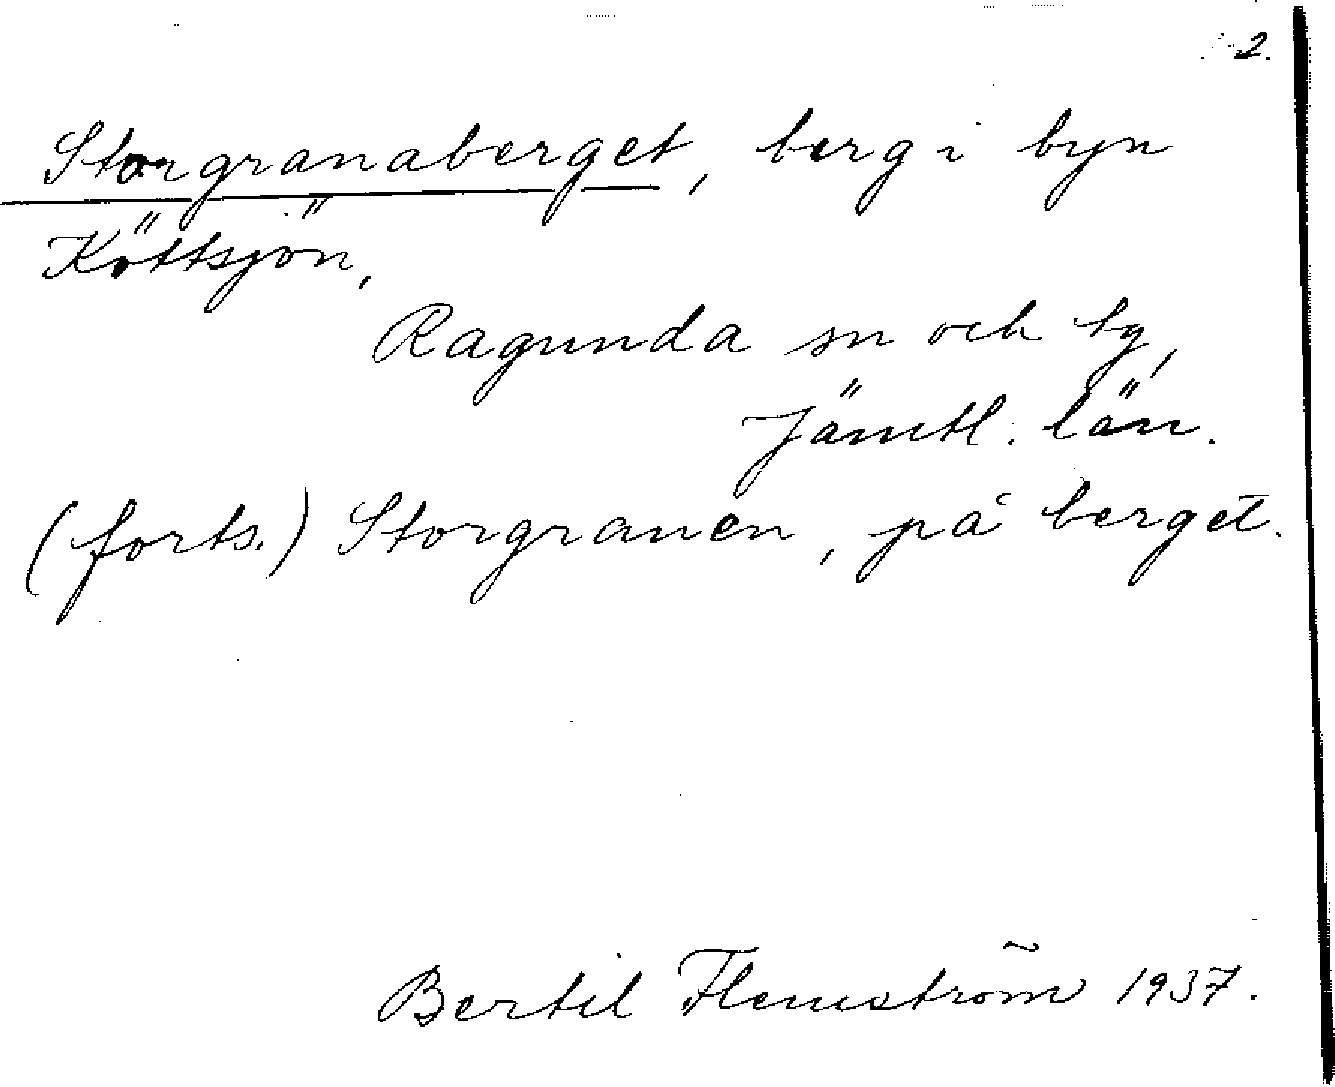 2.
Storgranaberget, berg i byn
Köttsjön,
Ragunda sn och tg,
Jämtl. län.
(forts.) Storgranen, på berget.
Bertil Flemström 1937.